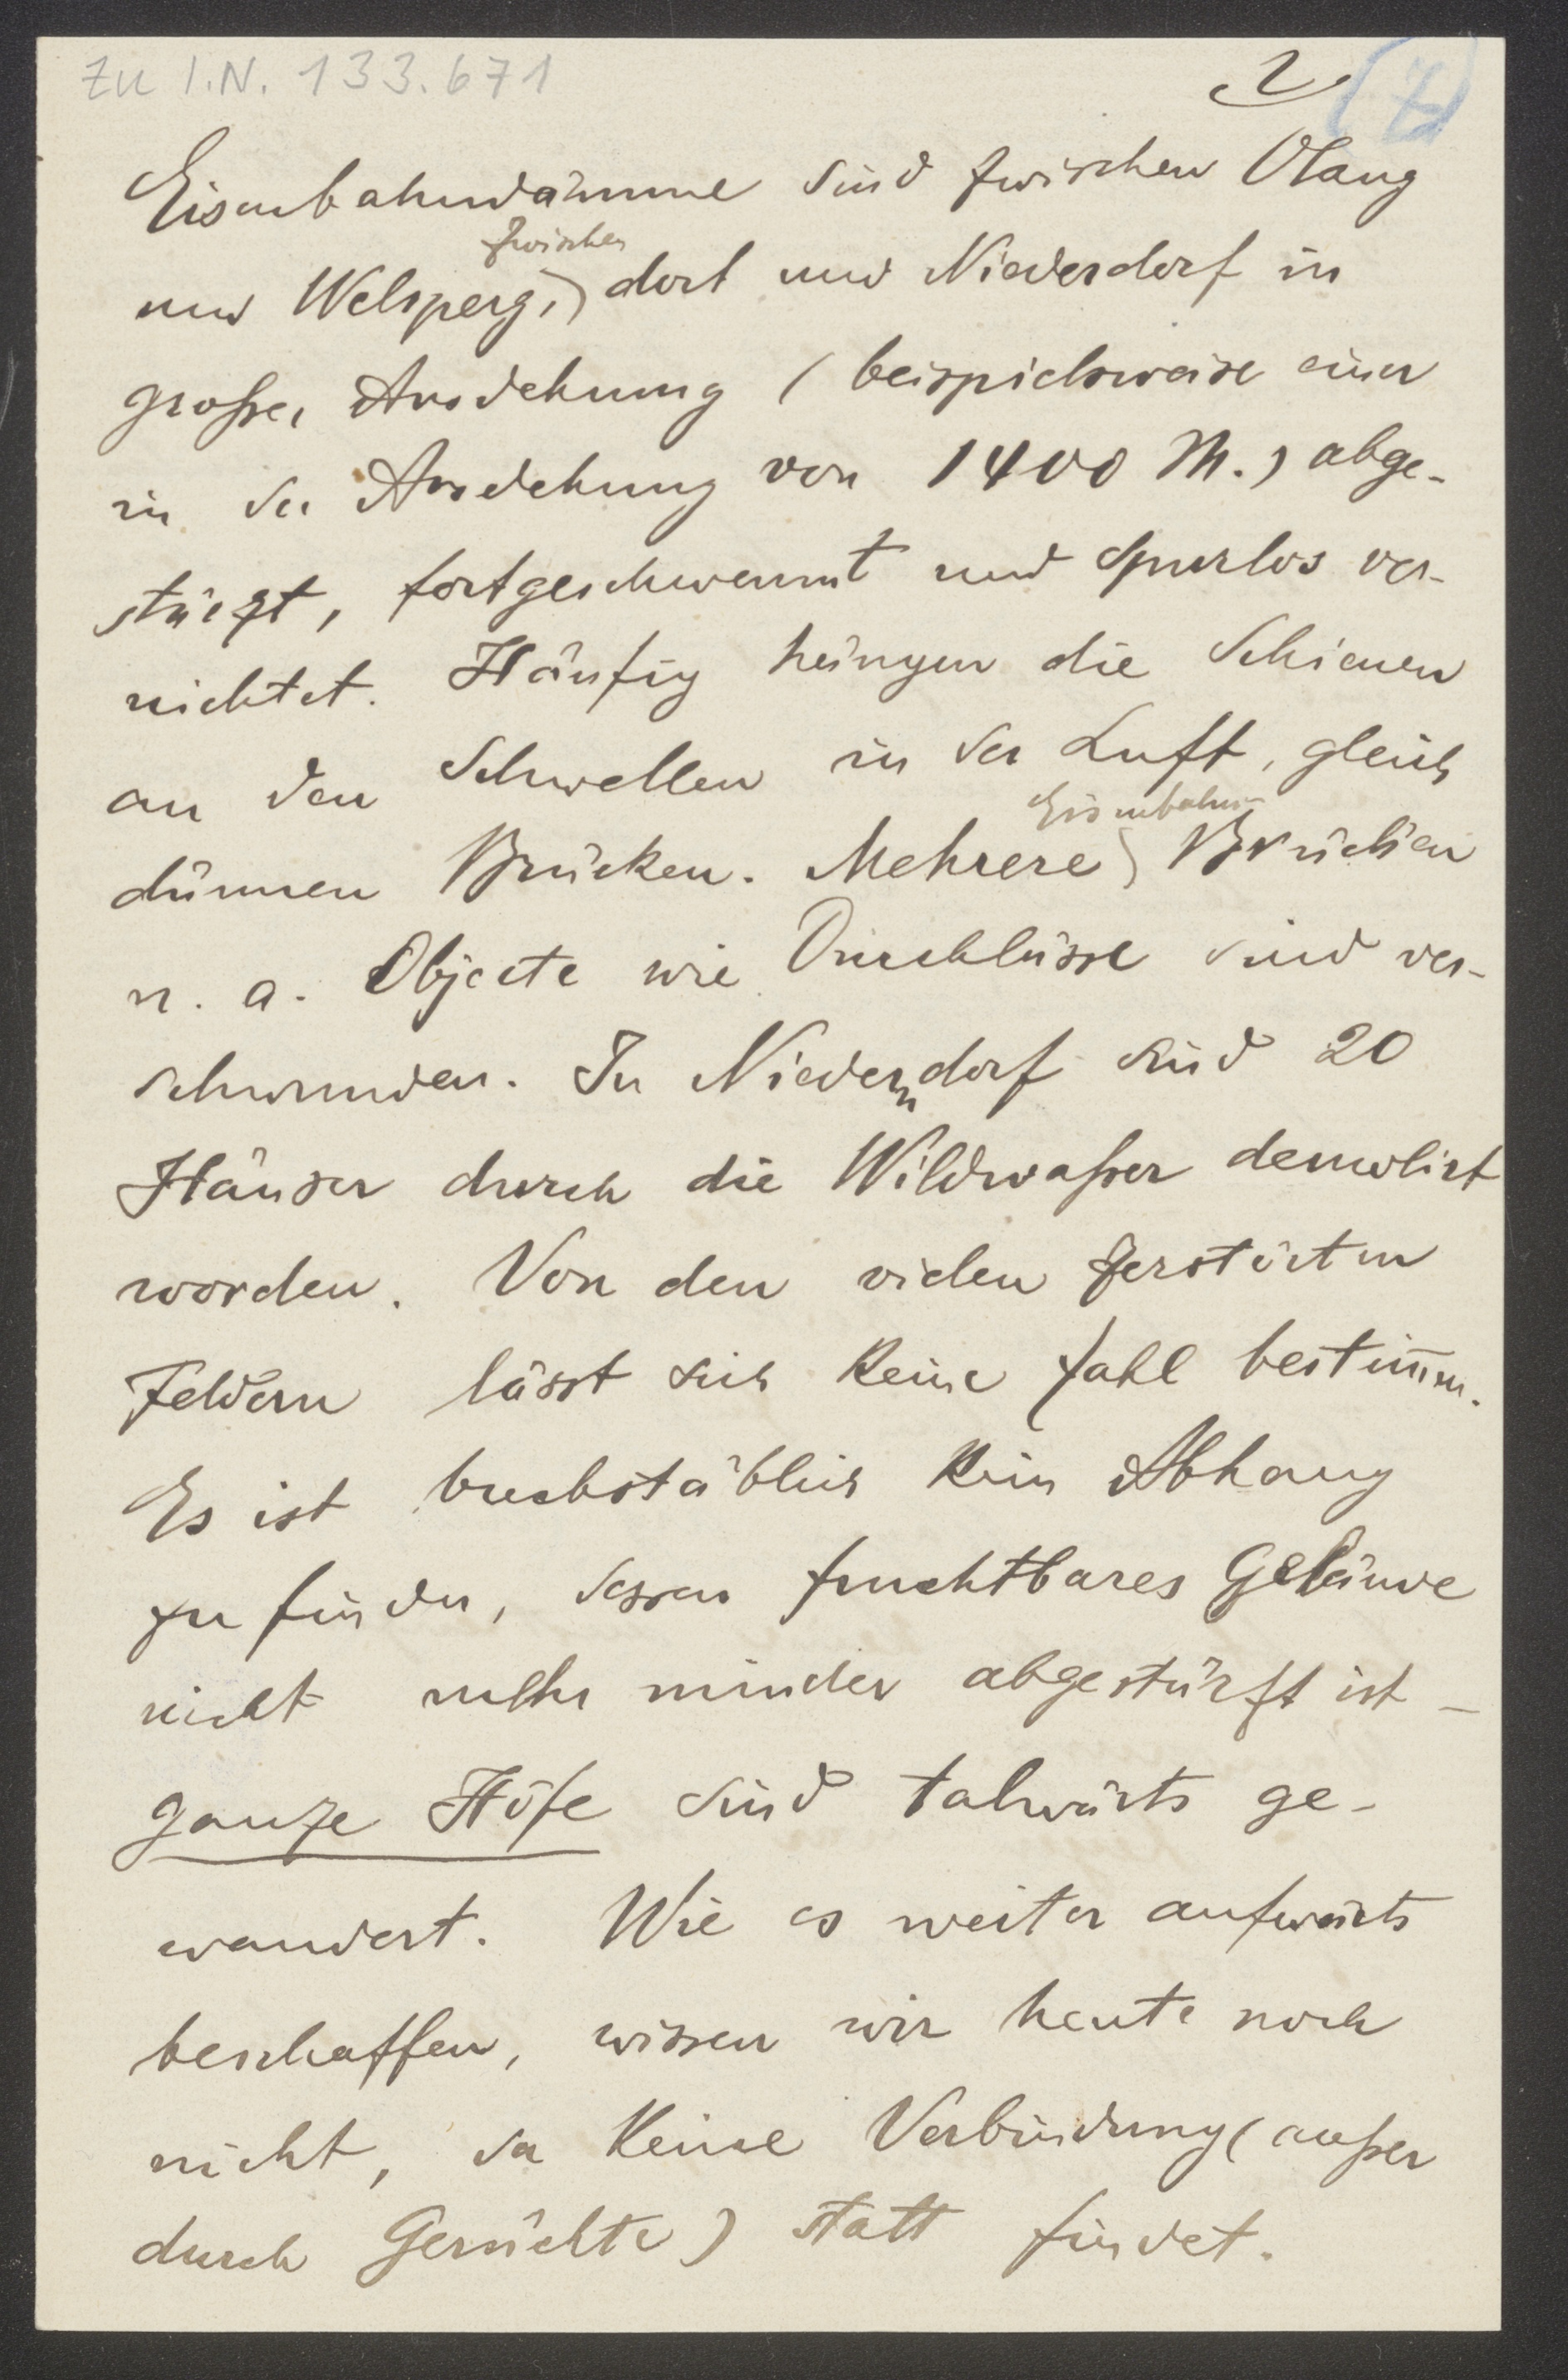 zu I.N. 133.671
2 (7)
Eisenbahndämme sind zwischen Olang
zwischen
und Welsperg, dort und Niederdorf in
großer Ausdehnung (beispielsweise einer
in der Ausdehnung von 1400 M.) abge-
stürzt, fortgeschwemmt und spurlos ver-
nichtet. Häufig hängen die Schienen
an den Schwellen in der Luft, gleich
Eisenbahn-
dünnen Brücken. Mehrere Brücken
u. a. Objecte wie Durchlässe sind ver-
schwunden. In Niederndorf sind 20
Häuser durch die Wildwaßer demolirt
worden. Von den vielen zerstörten
Feldern lässt sich keine Zahl bestim̄en.
Es ist buchstäblich kein Abhang
zu finden, dessen fruchtbares Gelände
nicht mehr minder abgestürzt ist –
ganze Höfe sind talwärts ge-
wandert. Wie es weiter aufwärts
beschaffen, wissen wir heute noch
nicht, da keine Verbindung (außer
durch Gerüchte) statt findet.